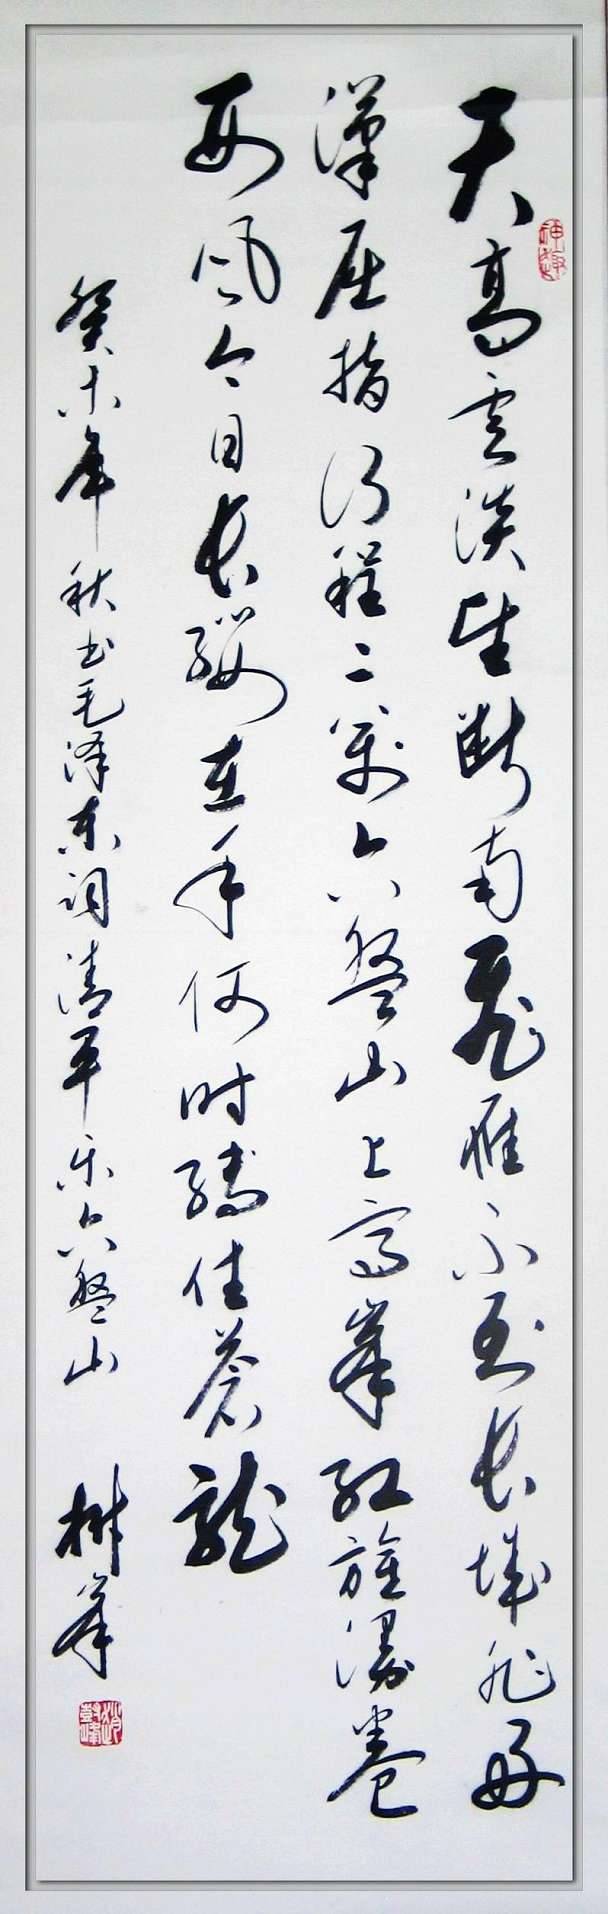 天高云淡望断南飛雁不到长城非好
漢屈指行程二萬六盤山上高峯红旗漫卷
西风今日长缨在手何时缚住蒼龙
癸未年秋书毛泽东词清平乐六盤山 树峯